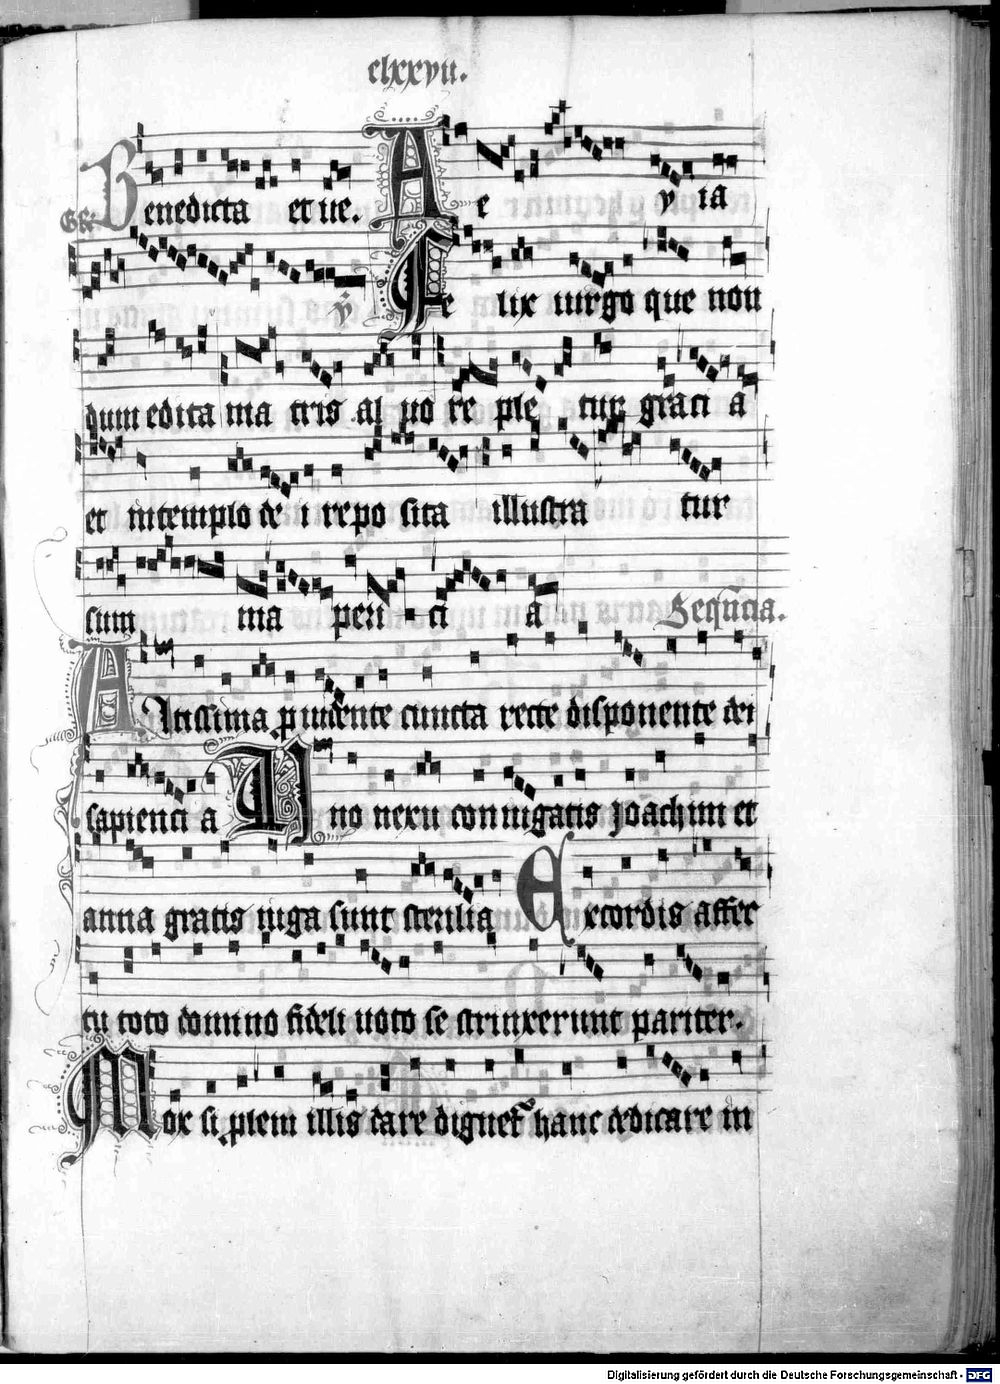 clxxvii.
Gr̃ Benedicta et ue. A e v ia
ṽ Fe lix uirgo que non
dum edita ma tris al uo re ple tur graci a
et in templo de i repo sita illustra tur
sum ma peri ci a Seqũcia.
Altissima p uidente cuncta recte disponente dei
sapienci a Uno nexu coniugatis Joachim et
anna gratis iuga sunt sterilia Ex cordis affec
tu toto domino fideli uoto se strinxerunt pariter.
Mox si plem illis dare dignet̃ hanc dedicare in
Digitalisierung gefördert durch die Deutsche Forschungsgemeinschaft - DFG